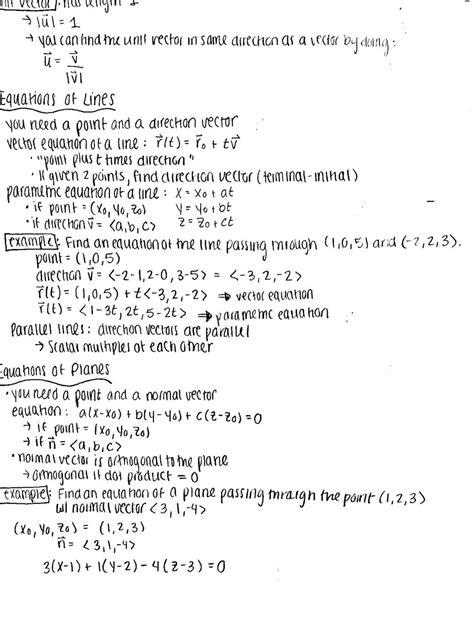 unit vector: has length 1
→ |u⃗| = 1
→ you can find the unit vector in same direction as a vector by doing:
u⃗ = v⃗/|v⃗|
Equations of Lines
you need a point and a direction vector
vector equation of a line: r⃗(t) = r⃗₀ + tv⃗
• "point plus t times direction"
• if given 2 points, find direction vector (terminal-initial)
parametric equation of a line: x = x₀ + at
• if point = (x₀, y₀, z₀) y = y₀ + bt
• if direction v⃗ = <a, b, c> z = z₀ + ct
example: Find an equation of the line passing through (1,0,5) and (-2,2,3).
point = (1,0,5)
direction v⃗ = <-2-1, 2-0, 3-5> = <-3, 2, -2>
r⃗(t) = (1,0,5) + t<-3,2,-2> ⇒ vector equation
r⃗(t) = <1-3t, 2t, 5-2t> ⇒ parametric equation
Parallel lines: direction vectors are parallel
→ scalar multiples of each other
Equations of Planes
• you need a point and a normal vector
equation: a(x-x₀) + b(y-y₀) + c(z-z₀) = 0
→ if point = (x₀, y₀, z₀)
→ if n⃗ = <a, b, c>
• normal vector is orthogonal to the plane
→ orthogonal if dot product = 0
example: Find an equation of a plane passing through the point (1,2,3)
w/ normal vector <3,1,-4>
(x₀, y₀, z₀) = (1,2,3)
n⃗ = <3,1,-4>
3(x-1) + 1(y-2) - 4(z-3) = 0